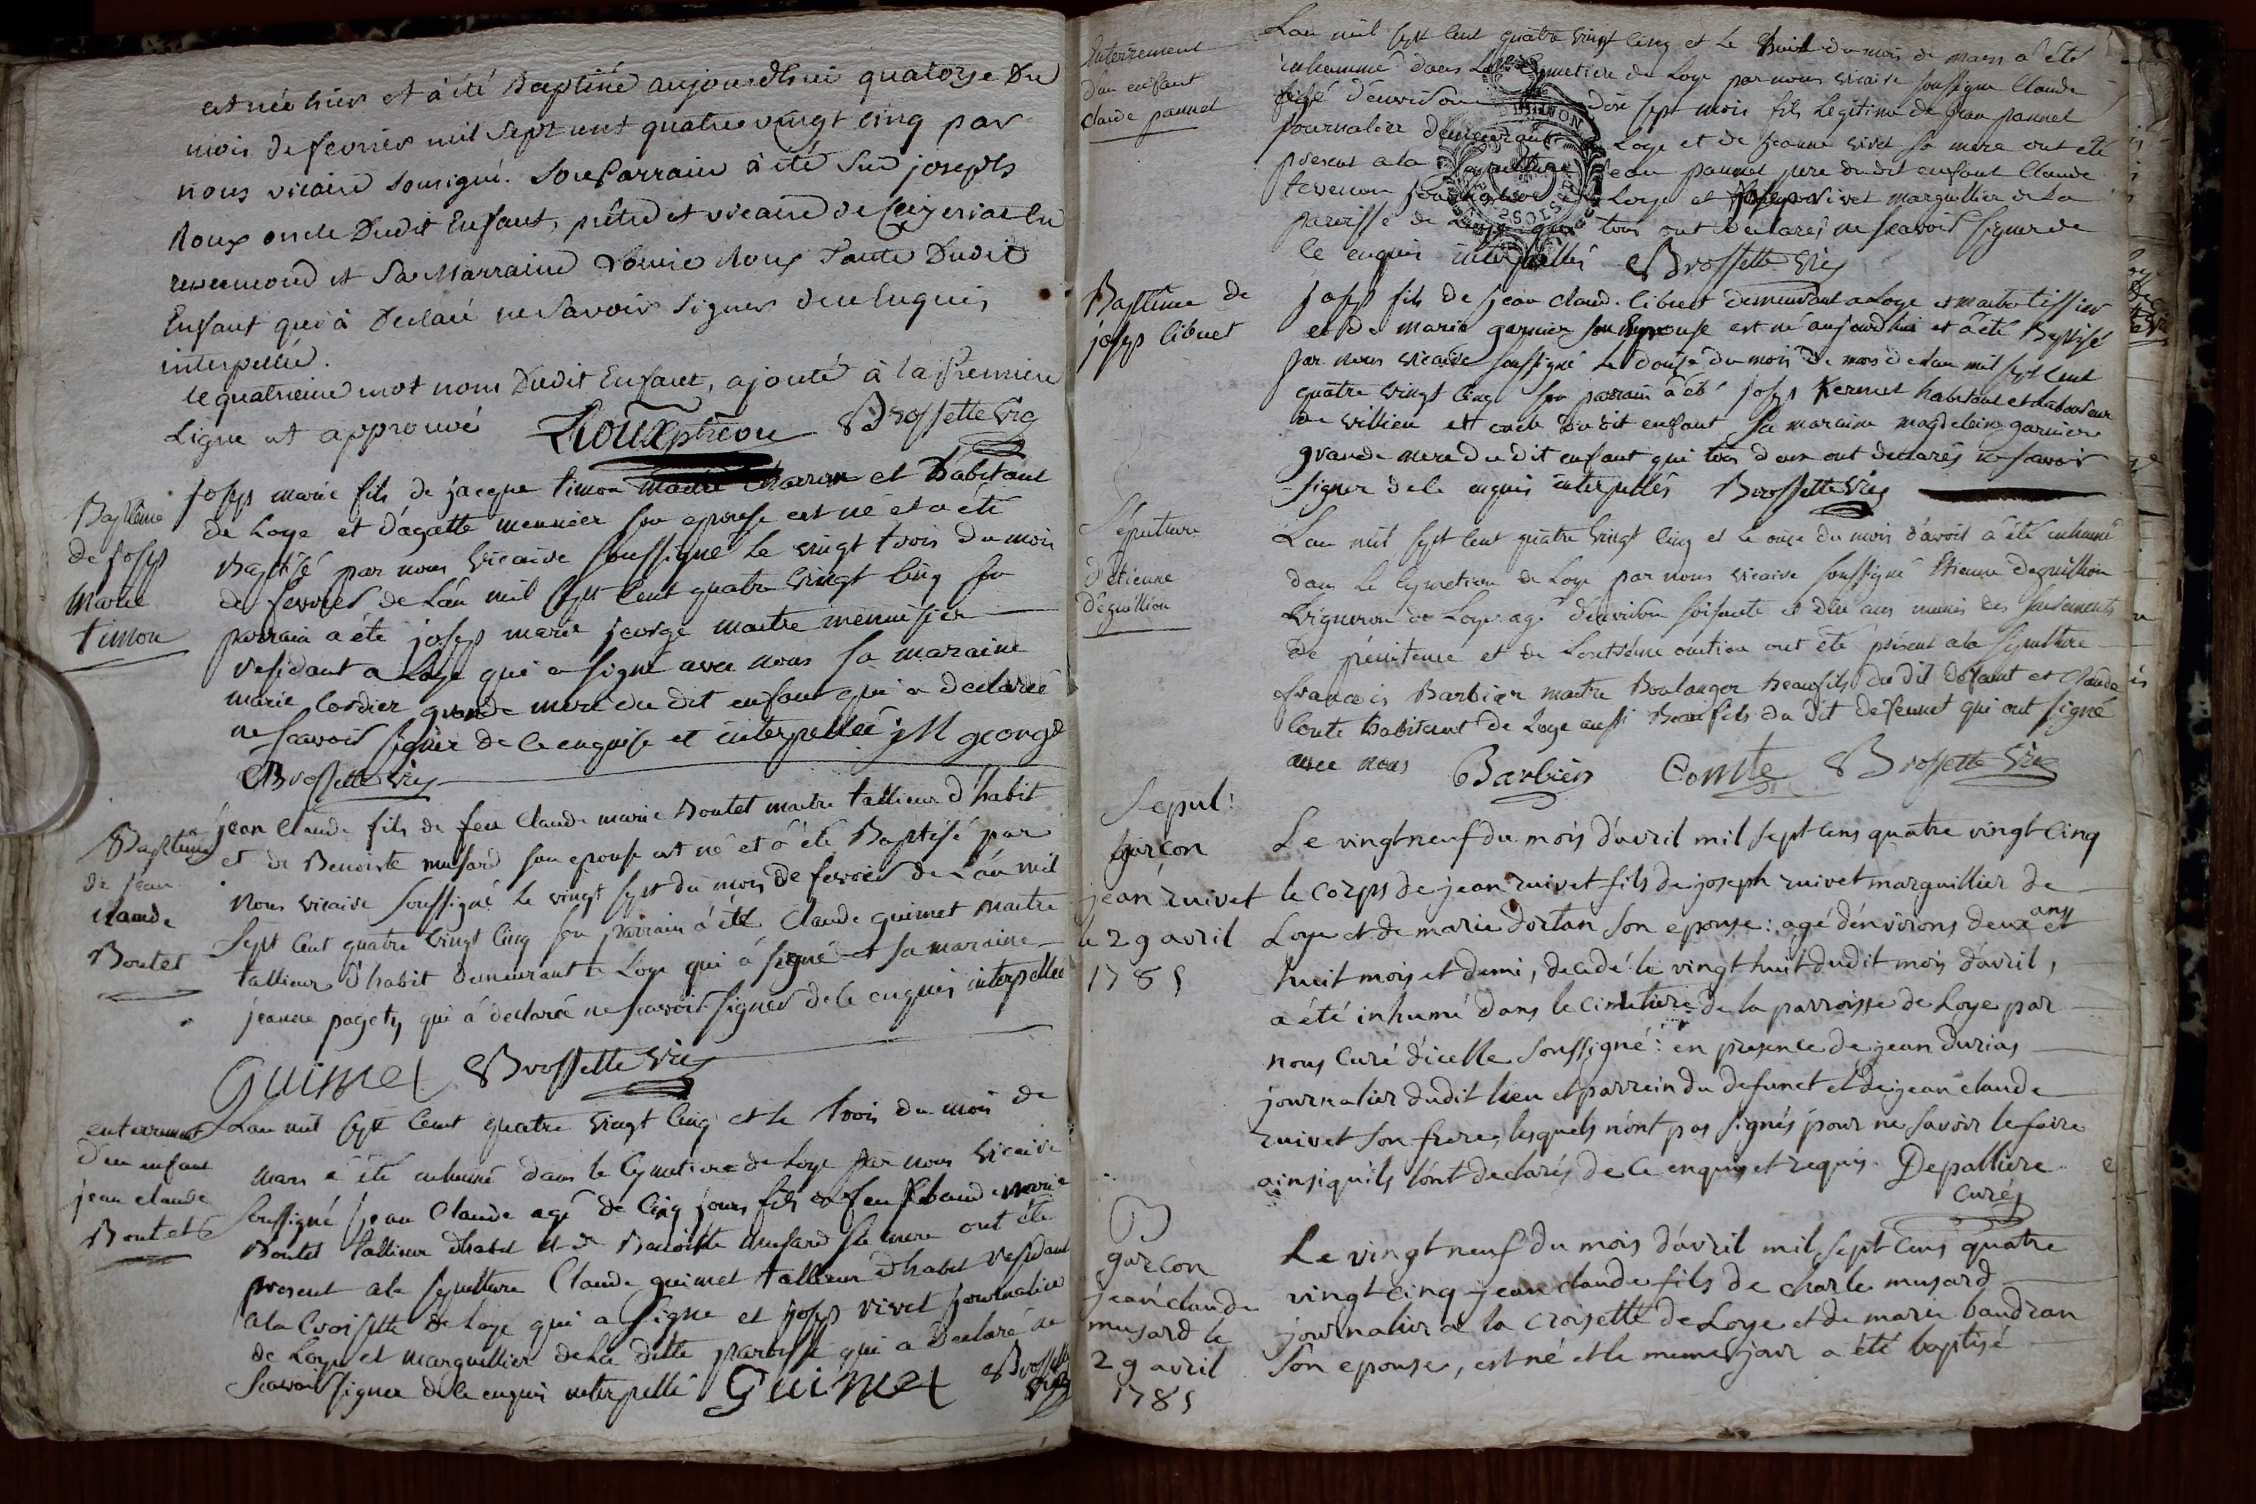 est née hier et à été Baptisée aujourdhui quatorze Du
mois de fevrier mil sept cent quatre vingt cinq par
nous vicaire sousigné. Son Parrain à été Sieur joseph
Roux oncle Dudit Enfant, prêtre et vicaire de Ceizeriat En
revermond et Sa Marraine Roux Tante Dudit
Enfant qui à Declaré ne Savoir signer de ce Enquis
interpellée.
le quatrieme mot nom Dudit Enfant, ajouté à la Premiere
Ligne est approuvé Roux Brossette vic
Baptême
de josep
marie
timon
josep marie fils de jacque timon maitre charron et habitant
de Loye et d'agatte meunier son epouse est né et a été
Baptisé par nous vicaire soussigné le vingt trois du mois
de fevrier de l'an mil sept cent quatre vingt cinq son
parrain a été josep marie jeorge maitre menuisier
residant a Loye qui a signe avec nous sa maraine
marie Cordier grande mere du dit enfant qui a declaree
ne scavoir signer de ce enquise et interpellée jM george
Brossette vic
Baptême
de jean
claude
Boutet
jean claude fils de feu claude marie Boutet maitre tallieur d'habit
et de Benoiste musard son epouse est né et à été Baptisé par
nous vicaire soussigné le vingt sept du mois de fevrier de l'an mil
sept cent quatre vingt cinq son parrain à été claude guimet maitre
tallieur d'habit demeurant a Loye qui à signé et sa maraine
jeanne pagety qui à declarée ne scavoir signer de ce enquis interpellée
Guimet Brossette vic
enterrement
d'un enfant
jean claude
Boutet
L'an mil sept cent quatre vingt cinq et le trois du mois de
mars a été inhumé dans le cymetiere de Loye par nous vicaire
soussigné jean claude agé de cinq jours fils de feu claude marie
Boutet tallieur dhabit et de Benoiste musard sa mere ont été
present a la sepulture Claude guimet tallieur d'habit residant
a la Croisette de Loye qui a signe et josep vivet journalier
de Loye et marguillier de la ditte paroisse qui a declaré ne
scavoir signer de ce enquis interpellé Guimet Brossette vic
Enterrement
d'un enfant
claude pannet
L'an mil sept cent quatre vingt cinq et le huit du mois de mars a été
inhumé dans le cymetiere de Loye par nous vicaire soussigné Claude
agé d'environ dix sept mois fils legitime de jean pannet
journalier demeurant a Loye et de jeanne vivet sa mere ont été
present a la sepulture jean pannet pere du dit enfant Claude
tevenon journalier de Loye et josep vivet marguillier de la
paroisse de Loye qui tous ont declarés ne scavoir signer de
ce enquis interpellés Brossette vic
Baptême de
josep libuet
josep fils de jean claud. libuet demeurant a Loye et maitre tissier
et de marie garnier son epouse est né aujourdhui et a été Baptisé
par nous vicaire soussigné le douse du mois de mars de l'an mil sept cent
quatre vingt cinq son parrain a été josep habitant et laboureur
de villieu et oncle du dit enfant sa maraine magdeleine garnier
grande mere du dit enfant qui tous deux ont declarés ne scavoir
signer de ce enquis interpellés Brossette vic
Sepulture
d'etienne
deguillion
L'an mil sept cent quatre vingt cinq et le onze du mois d'avril a été inhumé
dans le cymetiere de Loye par nous vicaire soussigné Etienne deguillion
vigneron de Loye agé d'environ soisante et dix ans munis des sacrements
de pénitence et de l'extrême onction ont été présent a la sepulture
francois Barbier maitre Boulanger beaufils du dit defunt et Claude
Comte habitant de Loye aussi Beaufils du dit defunct qui ont signé
avec nous Barbier Comte Brossette vic
Sepul:
garçon
jean ruivet
le 29 avril
1785
Le vingt neuf du mois d'avril mil sept cens quatre vingt cinq
le corps de jean ruivet fils de joseph ruivet marguillier de
Loye et de marie dortan son epouse: agé d'environs deux ans et
huit mois et demi, decedé le vingt huit dudit mois d'avril,
a été inhumé dans le cimetiere de la parroisse de Loye par
nous Curé d'icelle soussigné: en presence de jean durias
journalier dudit lieu et parrein du defunct et de jean claude
ruivet son frere, lesquels n'ont pas signés pour ne savoir le faire
ainsi qu'ils l'ont declarés de ce enquis et requis. Depalliere
curé
B
garçon
jean claude
musard le
29 avril
1785
Le vingt neuf du mois d'avril mil sept cens quatre
vingt cinq jean claude fils de charle musard
journalier a la croisette de Loye et de marie baudran
son epouse, est né et le meme jour a été baptisé